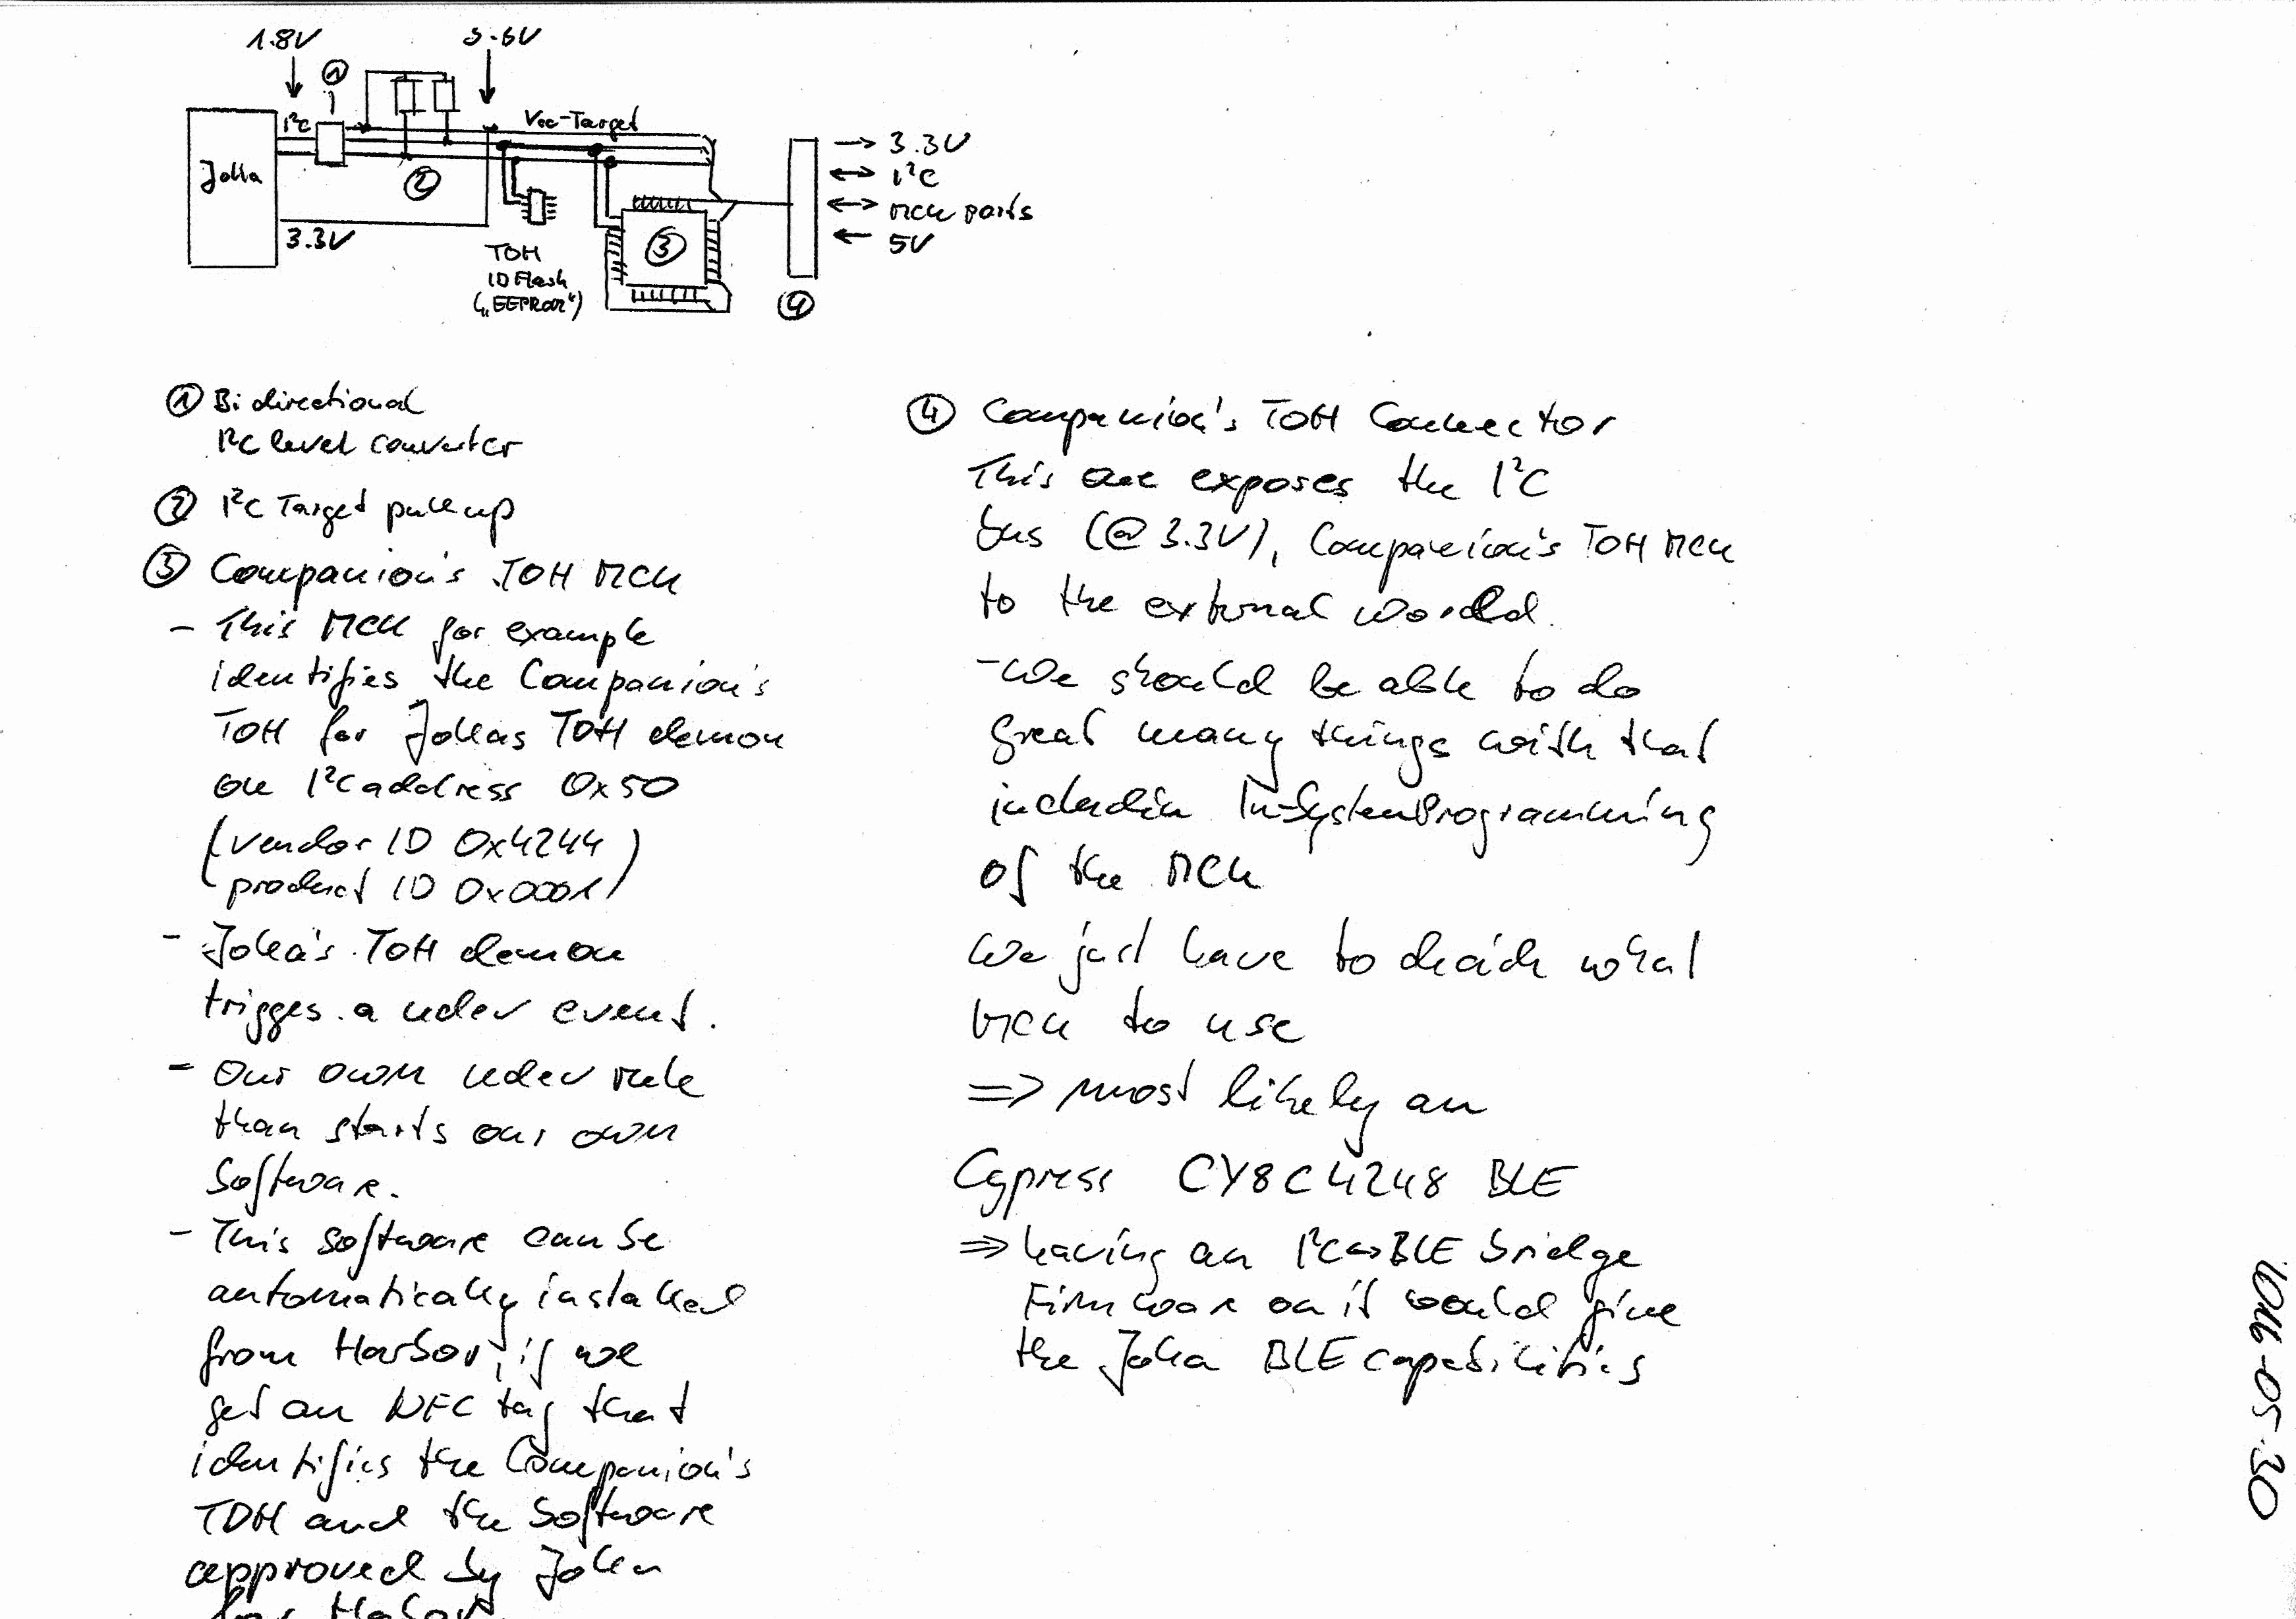 1.8V
3.3V
①
I²C
Vcc-Target
Jolla
②
3.3V
TOH
ID Flash
(„EEPROM“)
③
→ 3.3V
↔ I²C
↔ MCU ports
← 5V
④
① Bidirectional
I²C level converter
② I²C Target pullup
③ Companion's TOH MCU
- This MCU for example
identifies the Companion's
TOH for Jollas TOH demon
on I²C address 0x50
(vendor ID 0x4244
product ID 0x0001)
- Jolla's TOH demon
trigges a udev event.
- Our own udev rule
than starts our own
Software.
- This software can be
automatically installed
from Harbor, if we
get an NFC tag that
identifies the Companion's
TOH and the Software
approved by Jolla
for Harbor
④ Companion's TOH Connector
This one exposes the I²C
bus (@ 3.3V), Companion's TOH MCU
to the external world.
- We should be able to do
great many things with that
includin In-SystemProgramming
of the MCU
We just have to decide what
MCU to use
=> most likely an
Cypress CY8C4248 BLE
=> having an I²C<->BLE bridge
Firmware on it would give
the Jolla BLE capabilities